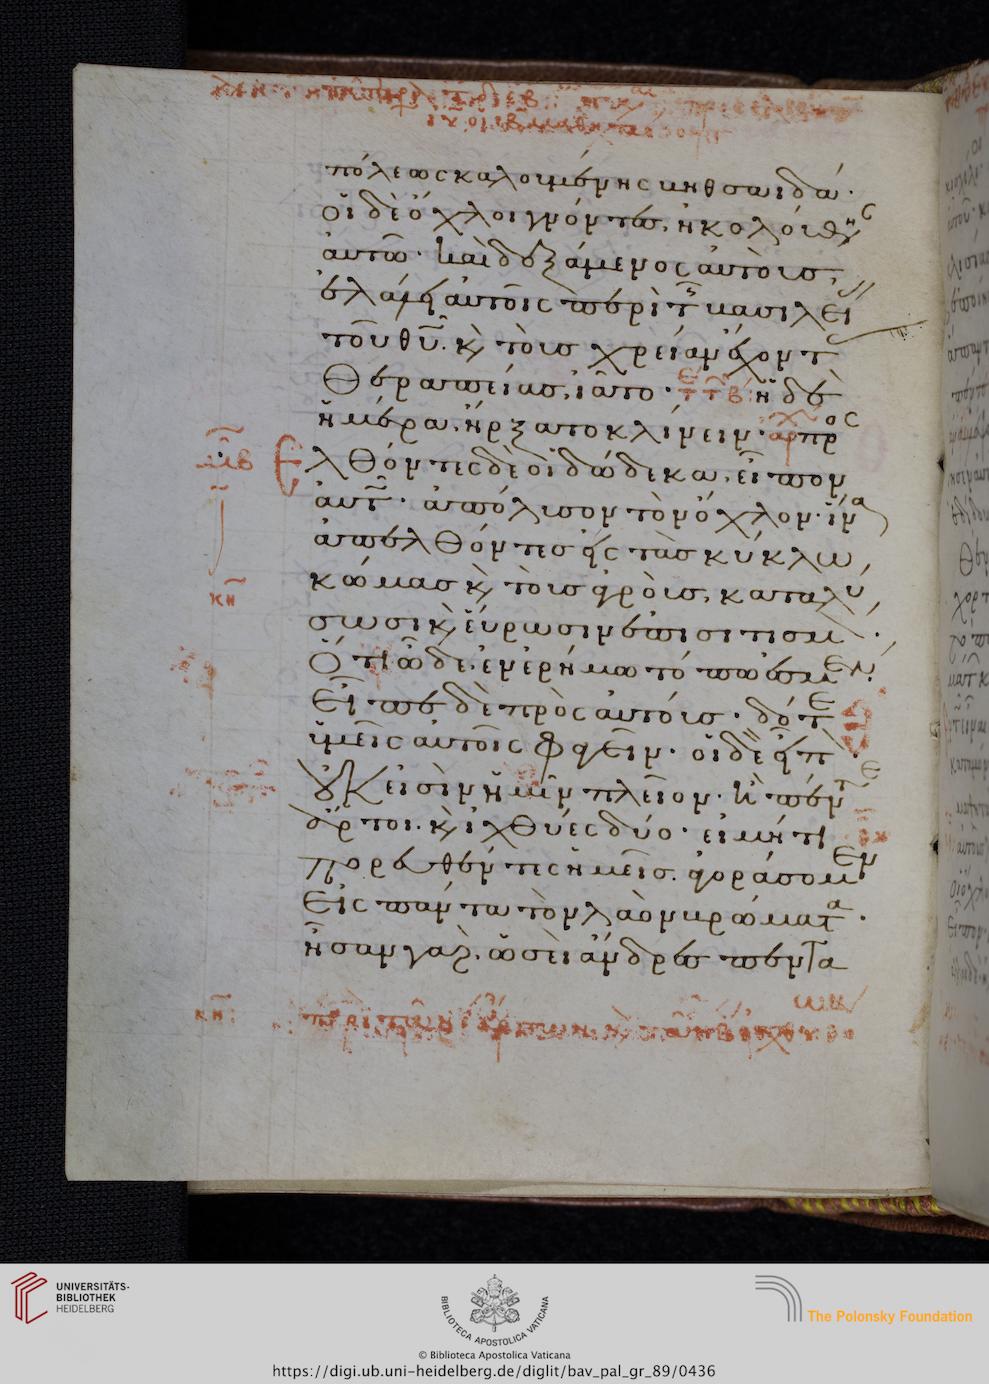 πόλεως καλουμένης βηθσαϊδά·
οἱ δὲ ὄχλοι γνόντες, ἠκολούθησ
αὐτῶ· καὶ δεξάμενος αὐτοὺσ,
ἐλάλει αὐτοῖς περὶ τῆς βασιλεί
τοῦ θυ̅. κ̀ τοὺσ χρείαν ἔχοντ
θεραπείασ, ἰᾶτο· ἡ δὲ
ἡμέρα, ἤρξατο κλίνειν· προσ
ελθόντες δὲ οἱ δώδεκα, εἶπον
αὐτ· ἀπόλυσον τὸν ὄχλον· ἵνα
ἀπελθόντεσ εἰς τὰσ κύκλω,
κώμασ κ̀ τοὺσ ἀγροὺσ, καταλύ
σωσι κ̀ εὕρωσιν ἐπισιτισμ·
ὅτι ὧδε ἐν ἐρήμω τόπω ἐσμέν·
εἶπε δὲ πρὸς αὐτούσ· δότε
ὑμεῖς αὐτοῖς φαγεῖν· οἱ δὲ εἶπ·
οὐκ εἰσὶν ἡμῖν πλεῖον· ἢ πέντε
ἄρτοι. κ̀ ἰχθύες δύο· εἰ μή τι
πορευθέντες ἡμεῖσ. ἀγοράσομεν
εἰς πάντα τὸν λαὸν βρώματα·
ἦσαν γὰρ. ὡσεὶ ἄνδρες πεντα
κη
UNIVERSITÄTS-
BIBLIOTHEK
HEIDELBERG
BIBLIOTECA APOSTOLICA VATICANA
The Polonsky Foundation
© Biblioteca Apostolica Vaticana
https://digi.ub.uni-heidelberg.de/diglit/bav_pal_gr_89/0436